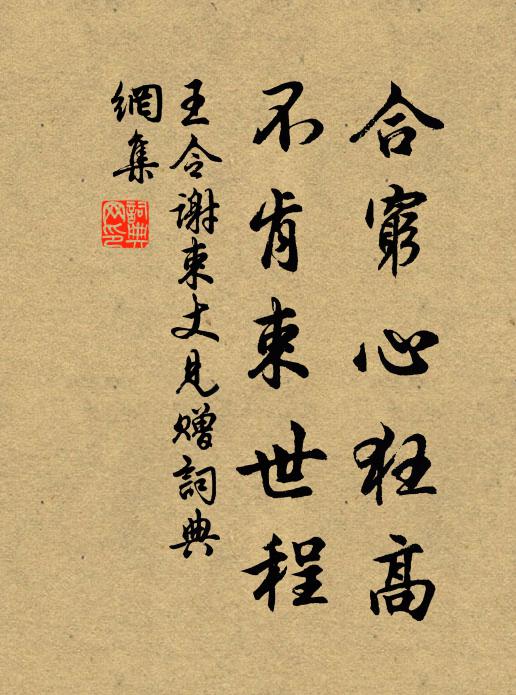 合窮心狂高
不肯束世程
王令謝束丈見贈詞典
網集
詞典
網印